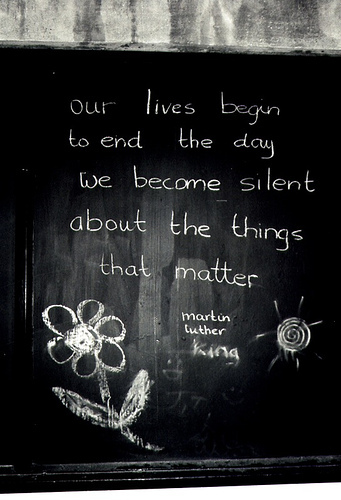 our lives begin
to end the day
we become silent
about the things
that matter
martin
luther
king